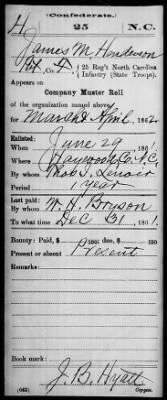 (Confederate.)
H 25 N.C.
James M Henderson
Co. 25 Reg't North Carolina
Infantry (State Troops).
Appears on
Company Muster Roll
of the organization named above
for March & April, 1862.
Enlisted:
When June 29, 1861.
Where Haywood Co. N.C.
By whom Thos I. Lenoir
Period 1 year
Last paid:
By whom W. H. Bryson
To what time Dec 31, 1861.
Bounty: Paid, $ ; due, $
Present or absent Present
Remarks:
Book mark:
J. B. Hyatt
(642) Copyist.